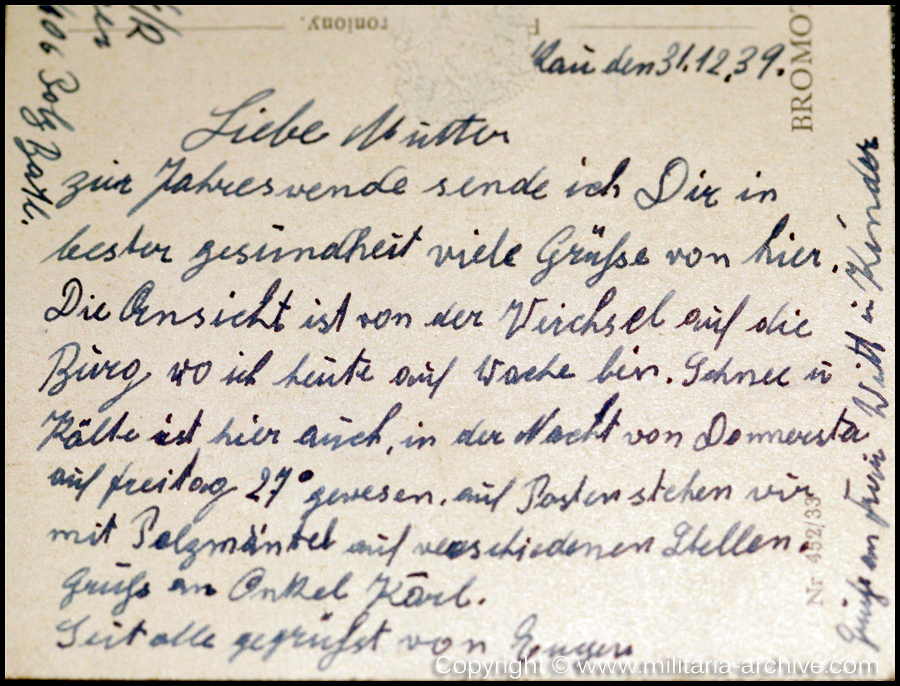 Kau den 31.12.39.
Liebe Mutter
zur Jahreswende sende ich Dir in
bester gesundheit viele Grüße von hier.
Die Ansicht ist von der Weichsel auf die
Burg wo ich heute auf Wache bin. Schnee u
Kälte ist hier auch, in der Nacht von Donnersta
auf freitag 27° gewesen. auf Posten stehen wir
mit Pelzmäntel auf verschiedenen Stellen.
Gruß an Onkel Karl.
Seit alle gegrüßt von Eugen
Grüße an Frau Witt u Kinder
Polz Batl.
BROMOT
Nr 452/33
Copyright © www.militaria-archive.com